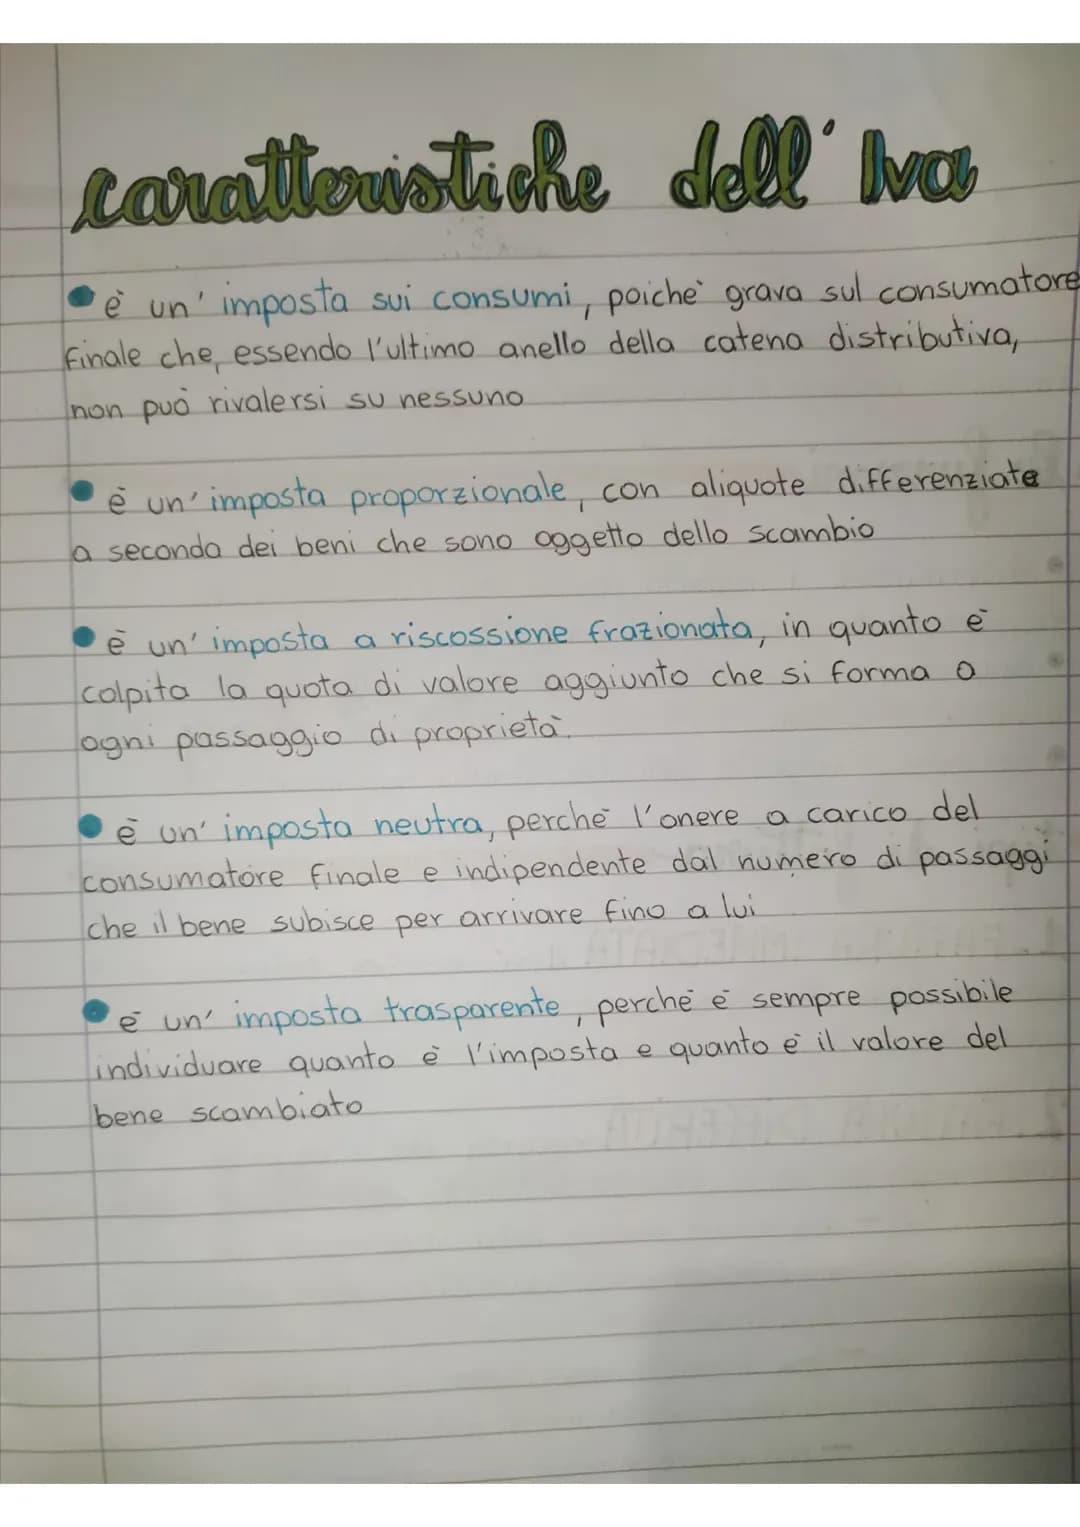 caratteristiche dell' Iva
• è un' imposta sui consumi, poichè grava sul consumatore
finale che, essendo l'ultimo anello della catena distributiva,
non può rivalersi su nessuno
• è un' imposta proporzionale, con aliquote differenziate
a seconda dei beni che sono oggetto dello scambio
• è un' imposta a riscossione frazionata, in quanto è
colpita la quota di valore aggiunto che si forma a
ogni passaggio di proprietà.
• è un' imposta neutra, perchè l'onere a carico del
consumatore finale e indipendente dal numero di passaggi
che il bene subisce per arrivare fino a lui
• è un' imposta trasparente, perchè è sempre possibile
individuare quanto è l'imposta e quanto è il valore del
bene scambiato